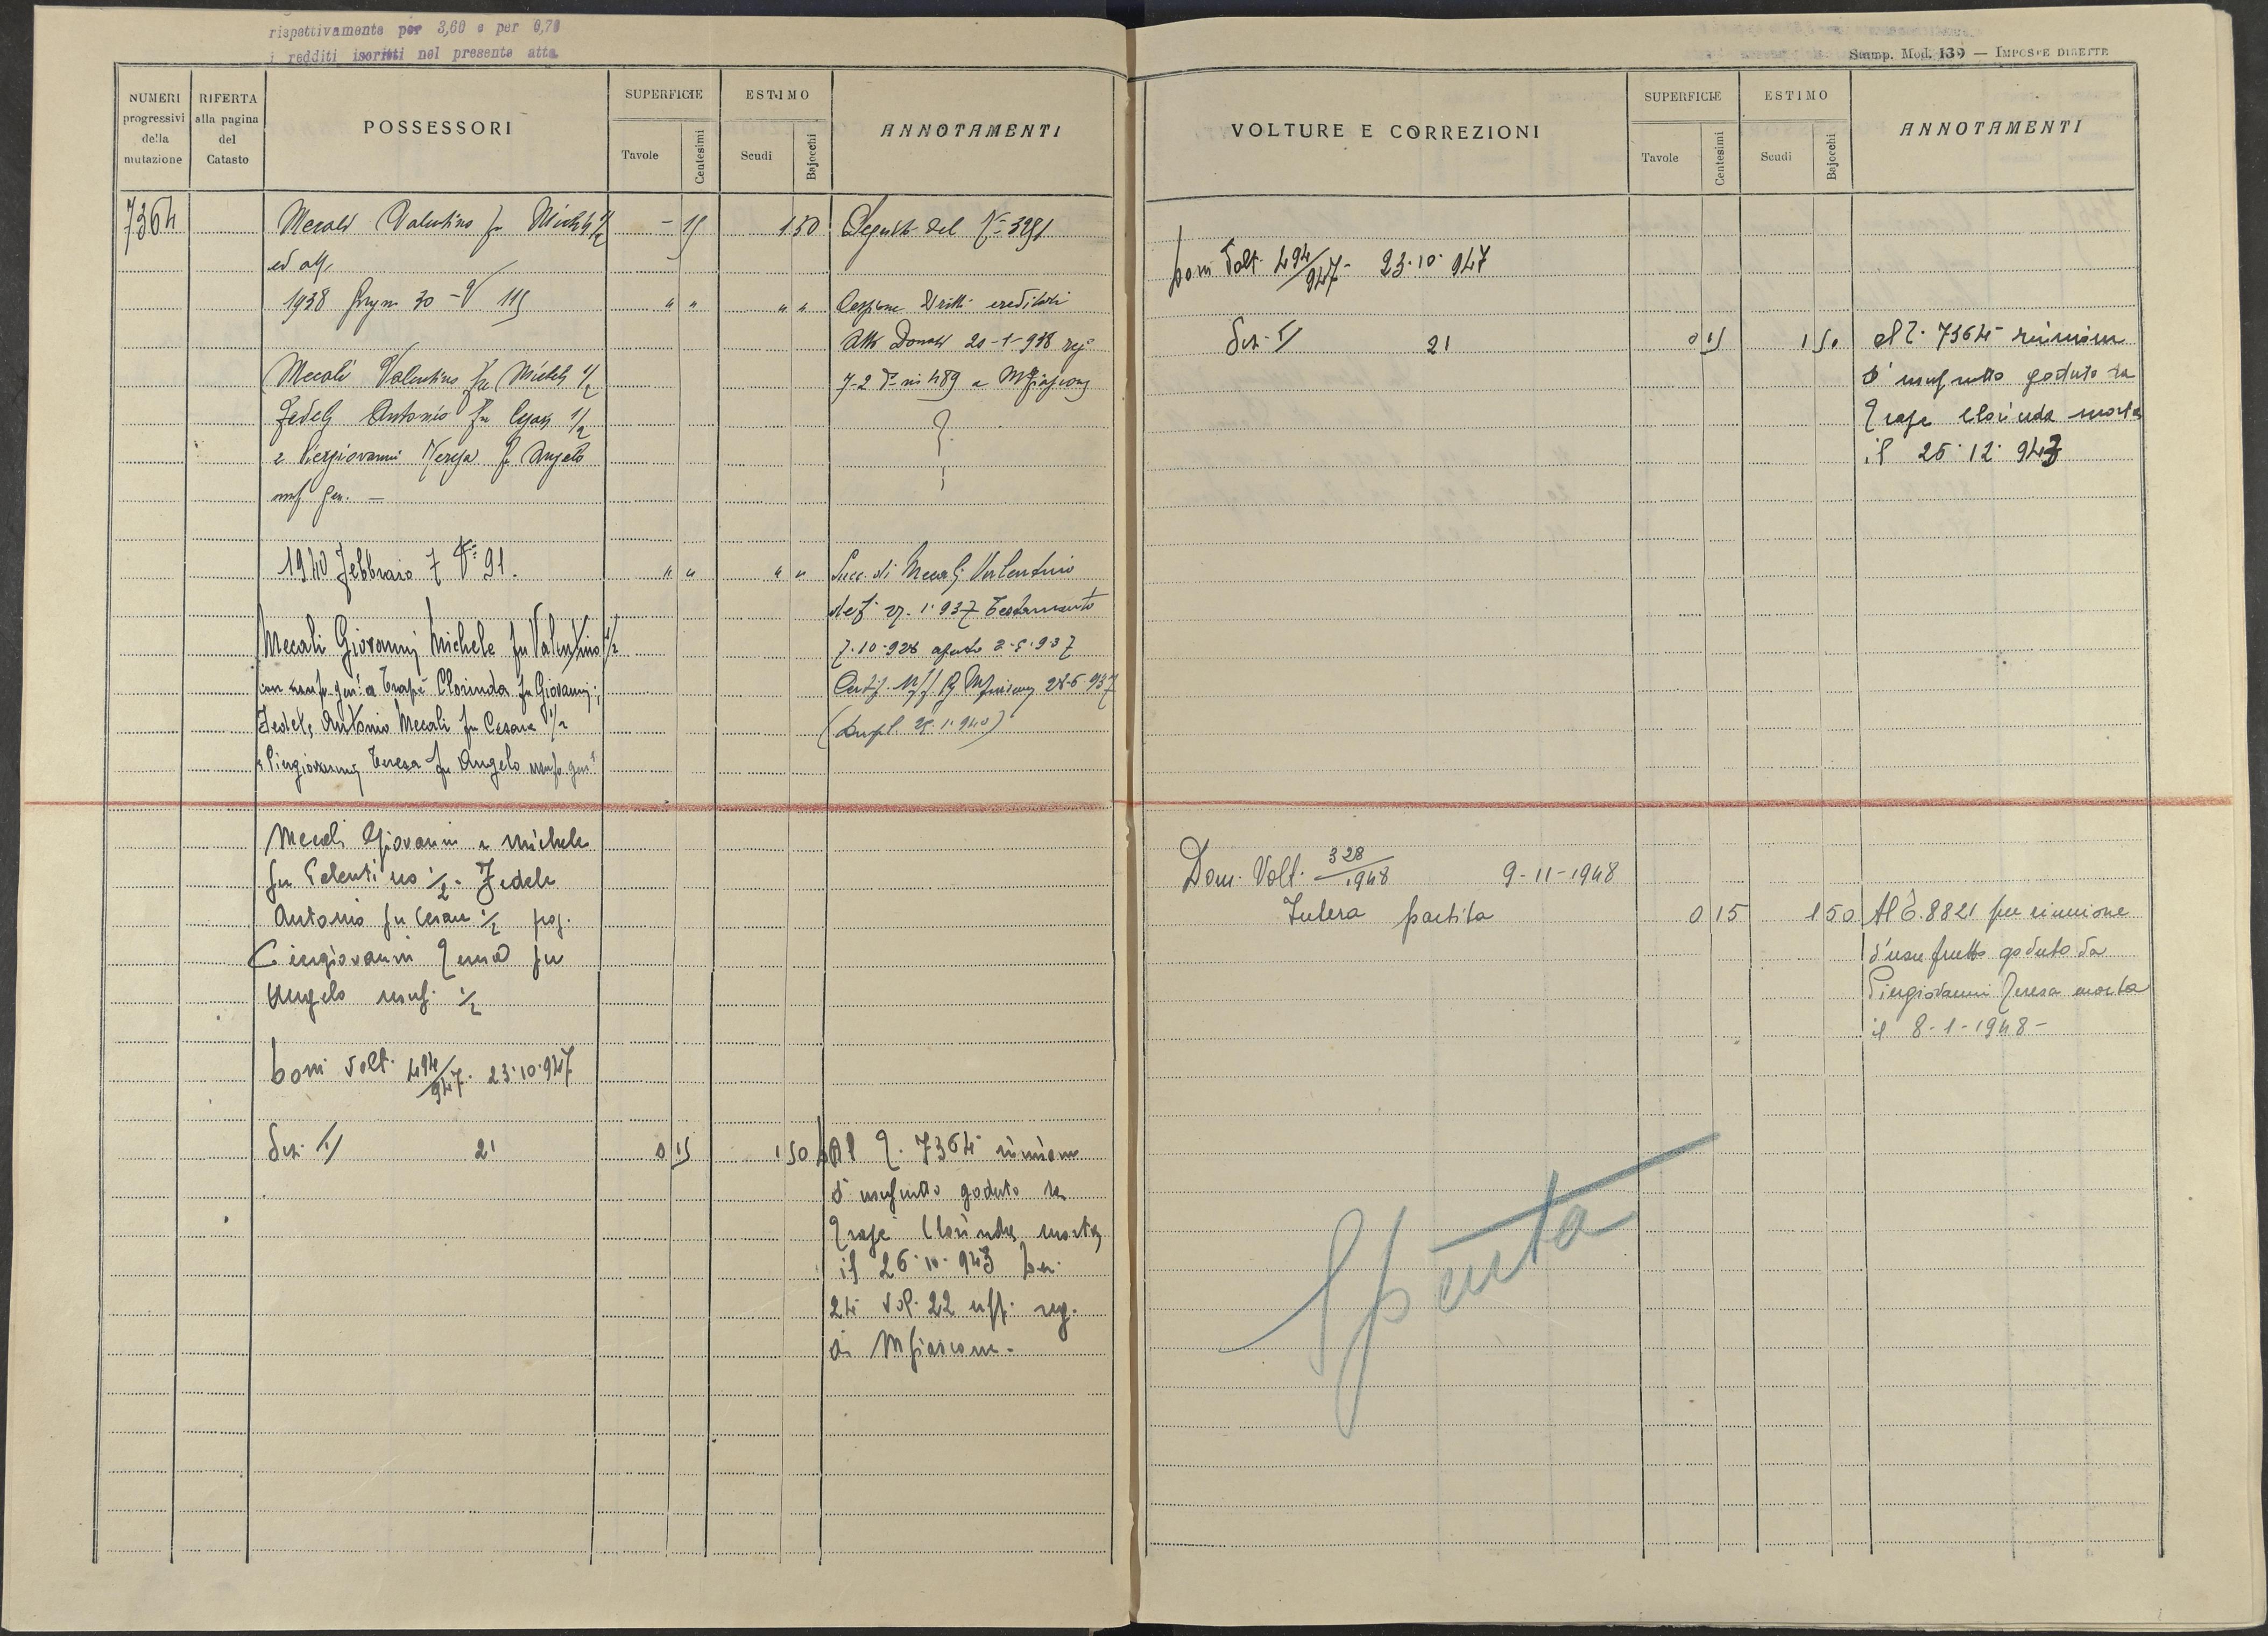 rispettivamente per 3,60 e per 0,70
i redditi iscritti nel presente atto
Stamp. Mod. 139 — IMPOSTE DIRETTE
NUMERI progressivi della mutazione
RIFERTA alla pagina del Catasto
POSSESSORI
SUPERFICIE
Tavole
Centesimi
ESTIMO
Scudi
Bajocchi
ANNOTAMENTI
7364
Mecali Valentino fu Michele 1/2 - 15 1 50 Seguito del N= 3251
ed altr.
1938 Giugno 30 - V 115 " " " " Cessione Dritti ereditari
Atto Donati 20-1-938 reg.
Mecali Valentino fu Michele 1/2 7-2 d.° n. 489 a Mfiascone
Fedeli Antonio fu Cesare 1/2
e Piergiovanni Teresa fu Angelo
usuf. gen. —
1940 Febbraio 7 V= 91. " " " " Succ. di Mecali Valentino
Testamento
Mecali Giovanni, Michele fu Valentino 1/2 7.10.928
con usuf. gen. a Trapè Clorinda fu Giovanni;
Fedeli Antonio Mecali fu Cesare 1/2
e Piergiovanni Teresa fu Angelo usuf. gen.
Mecali Giovanni e Michele
fu Valentino 1/2 - Fedele
Antonio fu Cesare 1/2
Piergiovanni Teresa fu
Angelo usuf. 1/2
Dom Volt. 494/947. 23.10.947
Sez. II 21 0 15 1 50 Al T. 7364 riunione
d'usufrutto goduto da
Trapè Clorinda morta
il 26.10.943
24 vol. 22 uff. reg.
di Mfiascone.
VOLTURE E CORREZIONI
SUPERFICIE
Tavole
Centesimi
ESTIMO
Scudi
Bajocchi
ANNOTAMENTI
Dom Volt. 494/947 - 23.10.947
Sez. II 21 0 15 1 50 al T. 7364 riunione
d'usufrutto goduto da
Trape Clorinda morta
il 26.12.943
Dom. Volt. 328/1948 9-11-1948
Intera partita 0 15 1 50 Al T. 8821 per riunione
d'usufrutto goduto da
Piergiovanni Teresa morta
il 8-1-1948-
Spenta